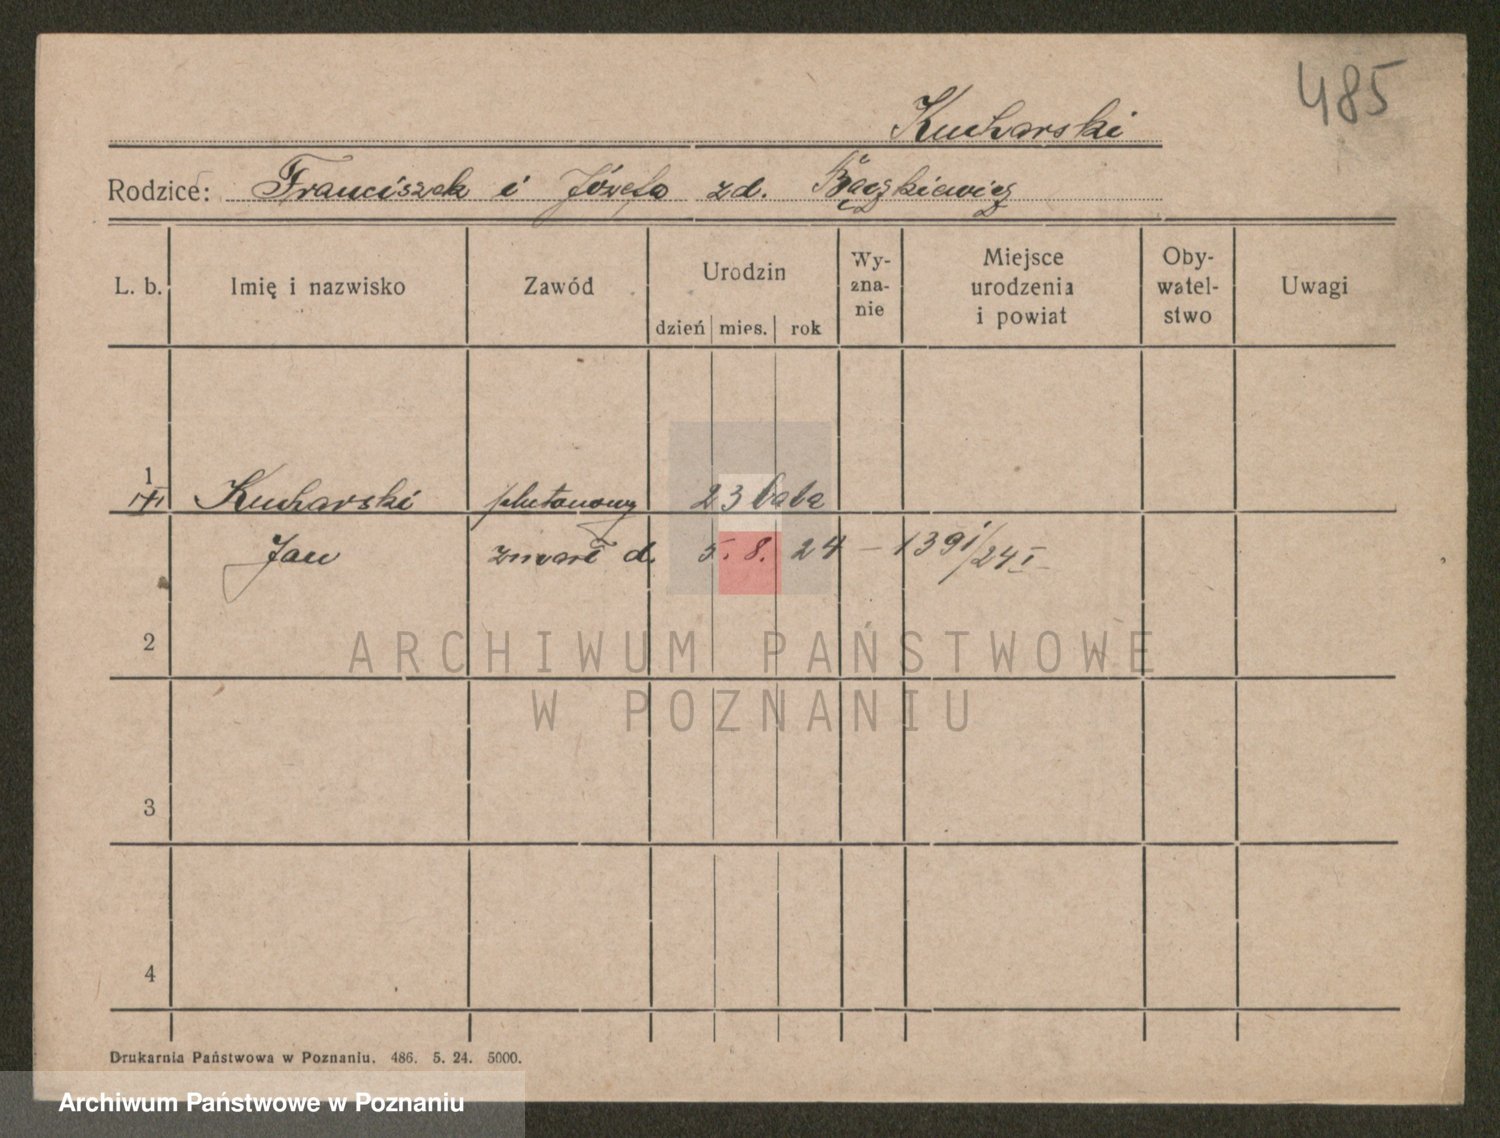 485
Kucharski
Rodzice: Franciszek i Józefa zd. Bączkiewicz
L. b. Imię i nazwisko Zawód Urodzin dzień mies. rok Wy-zna-nie Miejsce urodzenia i powiat Oby-watel-stwo Uwagi
1 Kucharski plutonowy 23 lata
Jan zmarł d. 5. 8. 24 – 1391/24 I
2
ARCHIWUM PAŃSTWOWE
W POZNANIU
3
4
Drukarnia Państwowa w Poznaniu. 486. 5. 24. 5000.
Archiwum Państwowe w Poznaniu